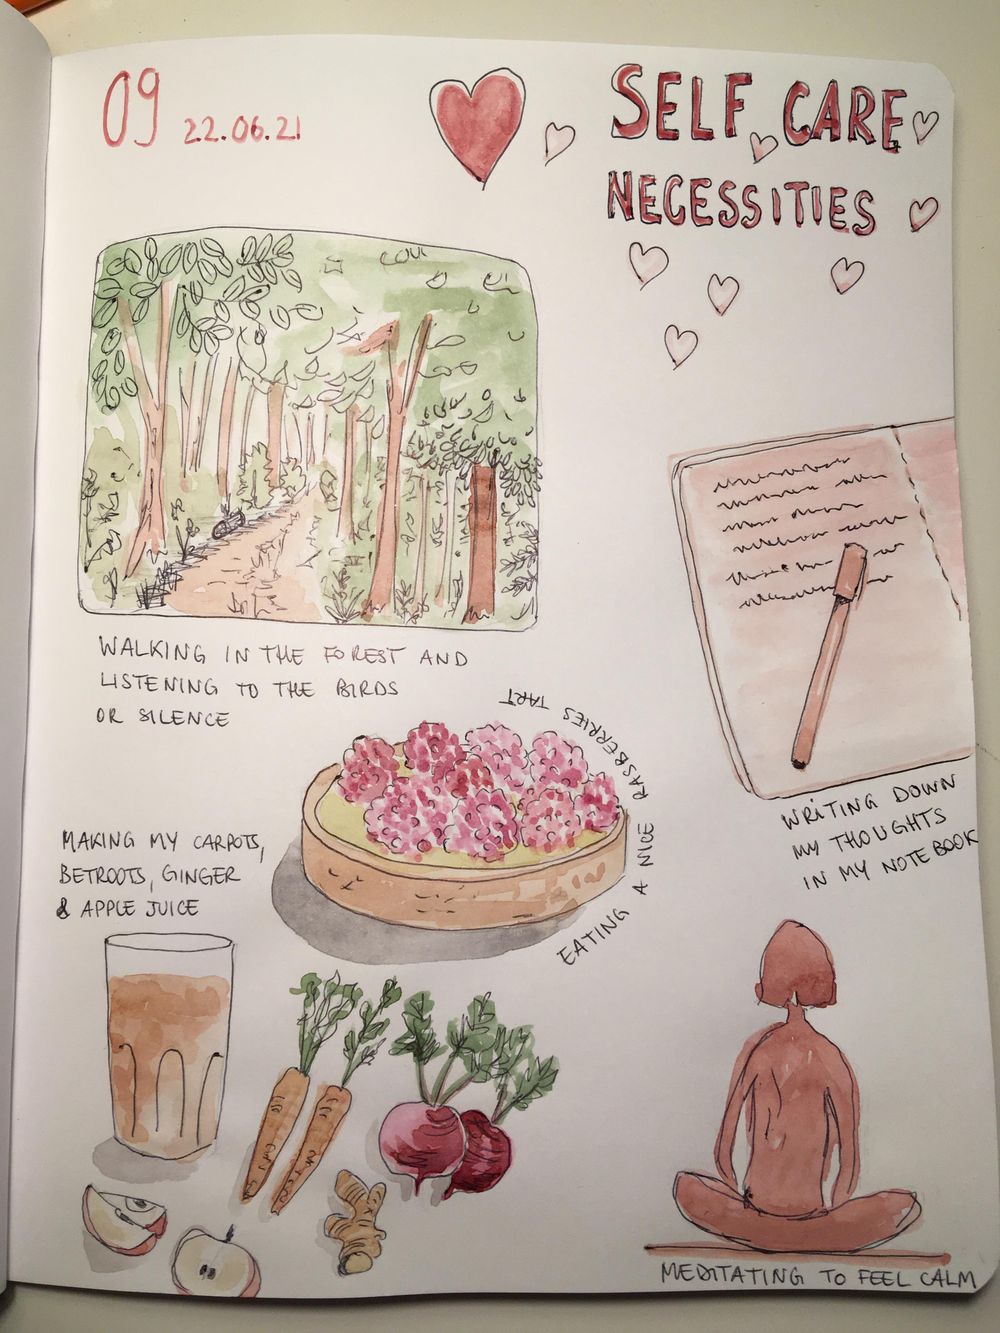 09 22.06.21
SELF CARE
NECESSITIES
WALKING IN THE FOREST AND
LISTENING TO THE BIRDS
OR SILENCE
EATING A NICE RASBERRIES TART
WRITING DOWN
MY THOUGHTS
IN MY NOTEBOOK
MAKING MY CARROTS,
BETROOTS, GINGER
& APPLE JUICE
MEDITATING TO FEEL CALM